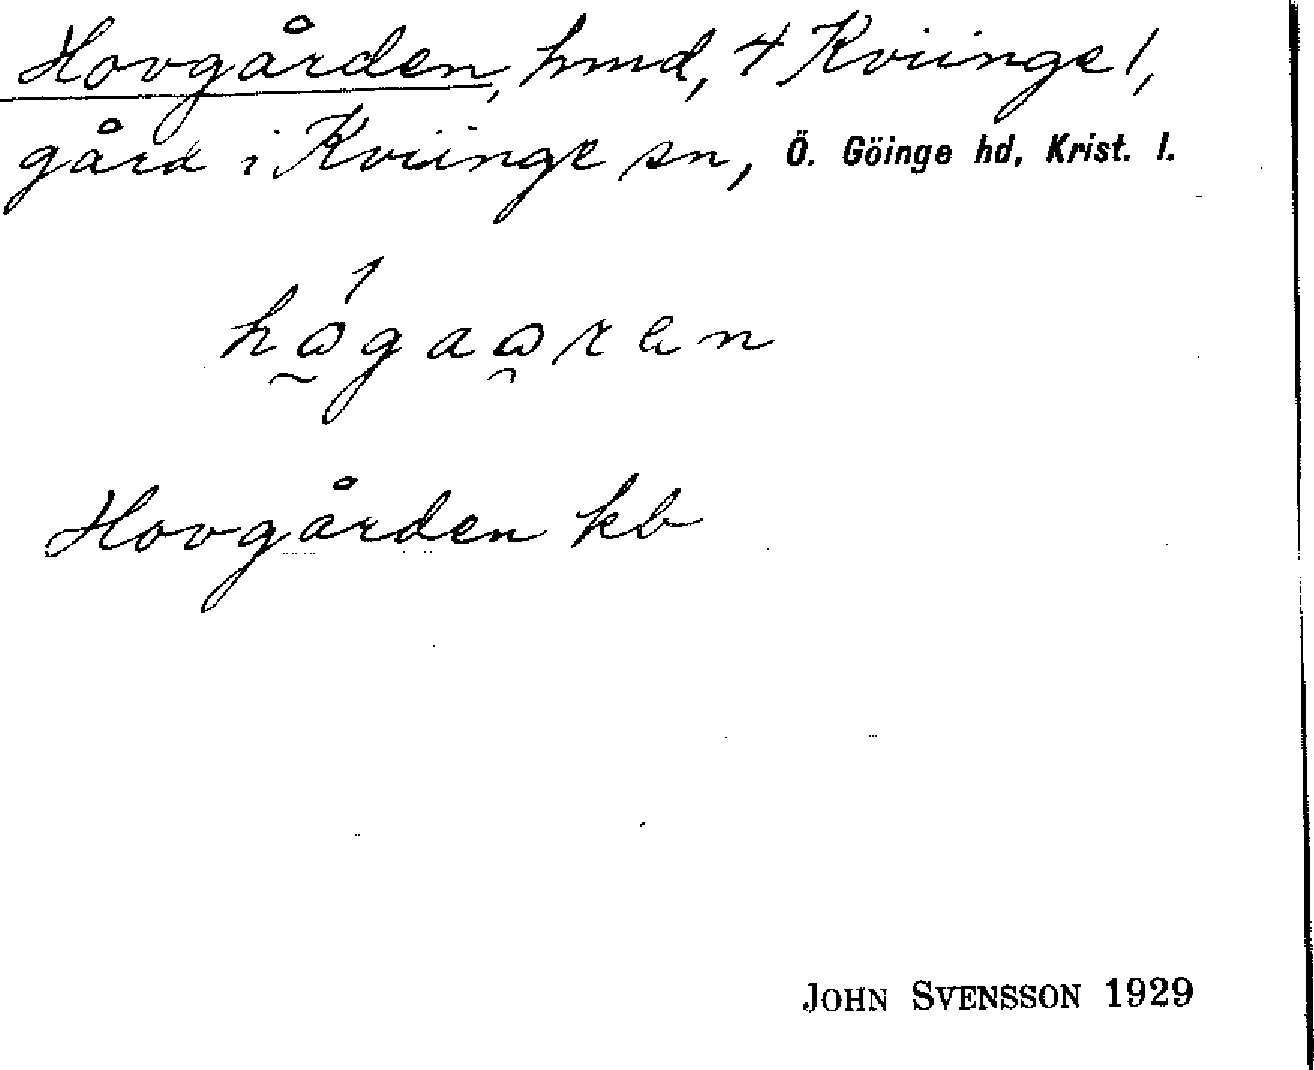 Hovgården, hmd, 4 Kviinge 1,
gård i Kviinge sn, Ö. Göinge hd, Krist. l.
Hovgården kb
JOHN SVENSSON 1929